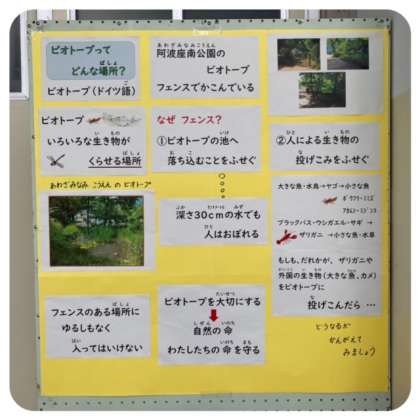 ビオトープって
どんな場所?
ビオトープ(ドイツ語)
ビオトープ
いろいろな生き物が
くらせる場所
あわざみなみ こうえん の ビオトープ
フェンスのある場所に
ゆるしもなく
入ってはいけない
阿波座南公園の
ビオトープ
フェンスでかこんでいる
なぜ フェンス?
①ビオトープの池へ
落ち込むことをふせぐ
深さ30cmの水でも
人はおぼれる
ビオトープを大切にする
自然の命
わたしたちの命を守る
②人による生き物の
投げこみをふせぐ
大きな魚・水鳥→ヤゴ→小さな魚
ボウフラ・ミミズ
アカムシ・ミジンコ
ブラックバス・ウシガエル・サギ →
ザリガニ →小さな魚・水草
もしも、だれかが、ザリガニや
外国の生き物(大きな魚、カメ)
をビオトープに
投げこんだら …
どうなるか
かんがえて
みましょう